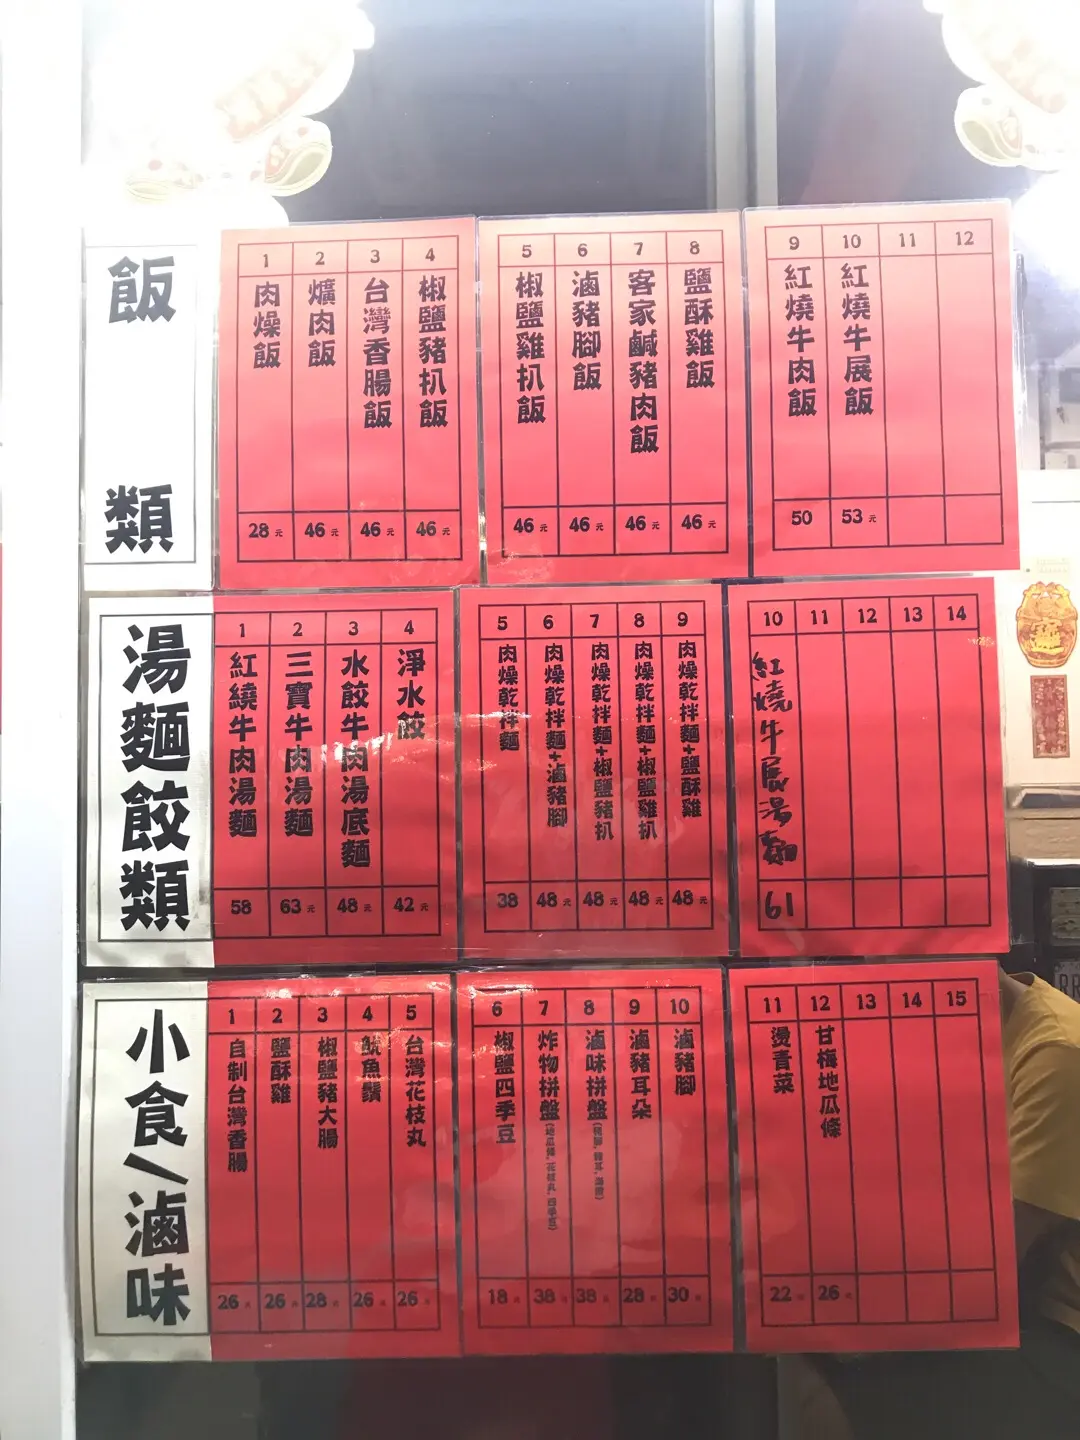 飯類
1 肉燥飯 28元
2 爌肉飯 46元
3 台灣香腸飯 46元
4 椒鹽豬扒飯 46元
5 椒鹽雞扒飯 46元
6 滷豬腳飯 46元
7 客家鹹豬肉飯 46元
8 鹽酥雞飯 46元
9 紅燒牛肉飯 50
10 紅燒牛展飯 53元
11
12
湯麵餃類
1 紅繞牛肉湯麵 58
2 三寶牛肉湯麵 63元
3 水餃牛肉湯底麵 48元
4 淨水餃 42元
5 肉燥乾拌麵 38
6 肉燥乾拌麵+滷豬腳 48元
7 肉燥乾拌麵+椒鹽豬扒 48元
8 肉燥乾拌麵+椒鹽雞扒 48元
9 肉燥乾拌麵+鹽酥雞 48元
10 紅燒牛展湯麵 61
11
12
13
14
小食/滷味
1 自制台灣香腸 26元
2 鹽酥雞 26元
3 椒鹽豬大腸 28元
4 魷魚鬚 26元
5 台灣花枝丸 26元
6 椒鹽四季豆 18元
7 炸物拼盤(地瓜條,花枝丸,四季豆) 38元
8 滷味拼盤 38元
9 滷豬耳朵 28元
10 滷豬腳 30元
11 燙青菜 22元
12 甘梅地瓜條 26元
13
14
15